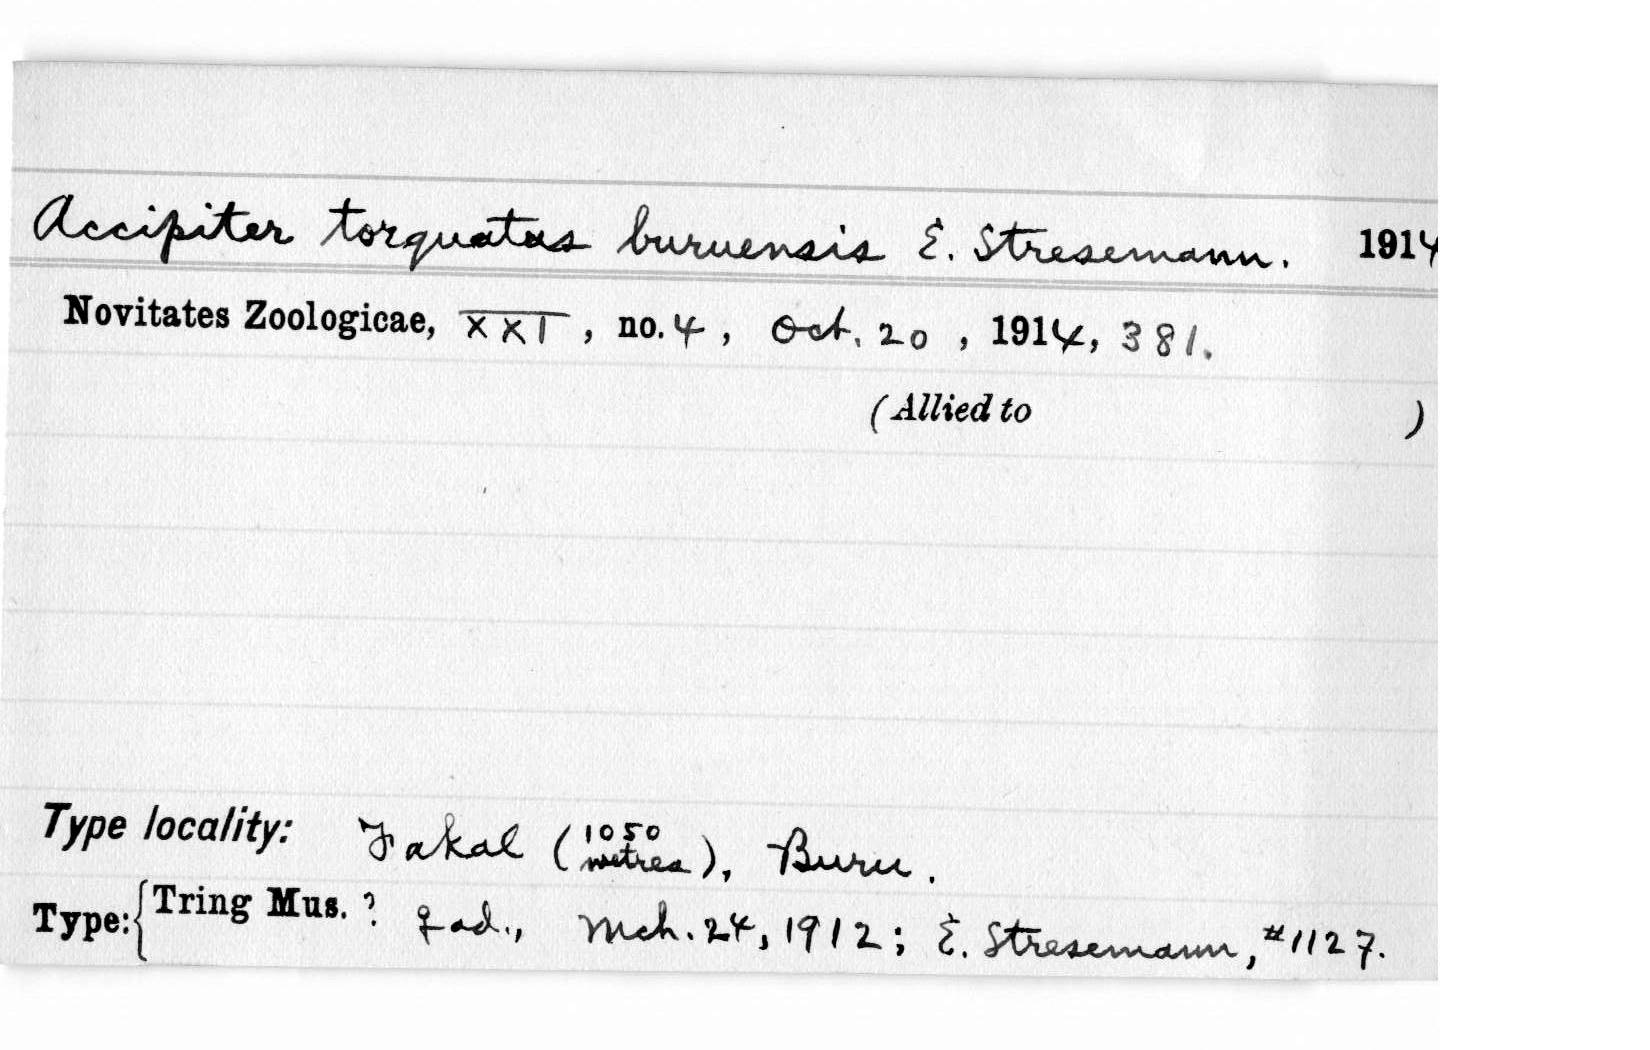 Accipiter torquatus buruensis E. Stresemann. 1914
Novitates Zoologicae, XXI, no. 4, Oct. 20, 1914, 381.
(Allied to )
Type locality: Fakal (1050 metres), Buru.
Type: { Tring Mus. ? ♀ ad., Mch. 24, 1912; E. Stresemann, #1127.